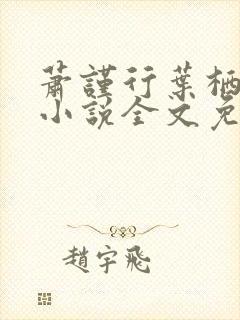 蕭謹行葉栖
小說全文免
趙宇飛